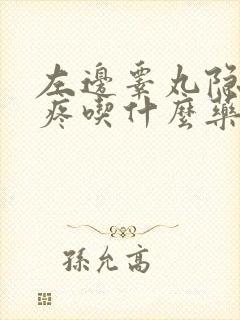 左邊睾丸隐
疼喫什麼藥
孫允高